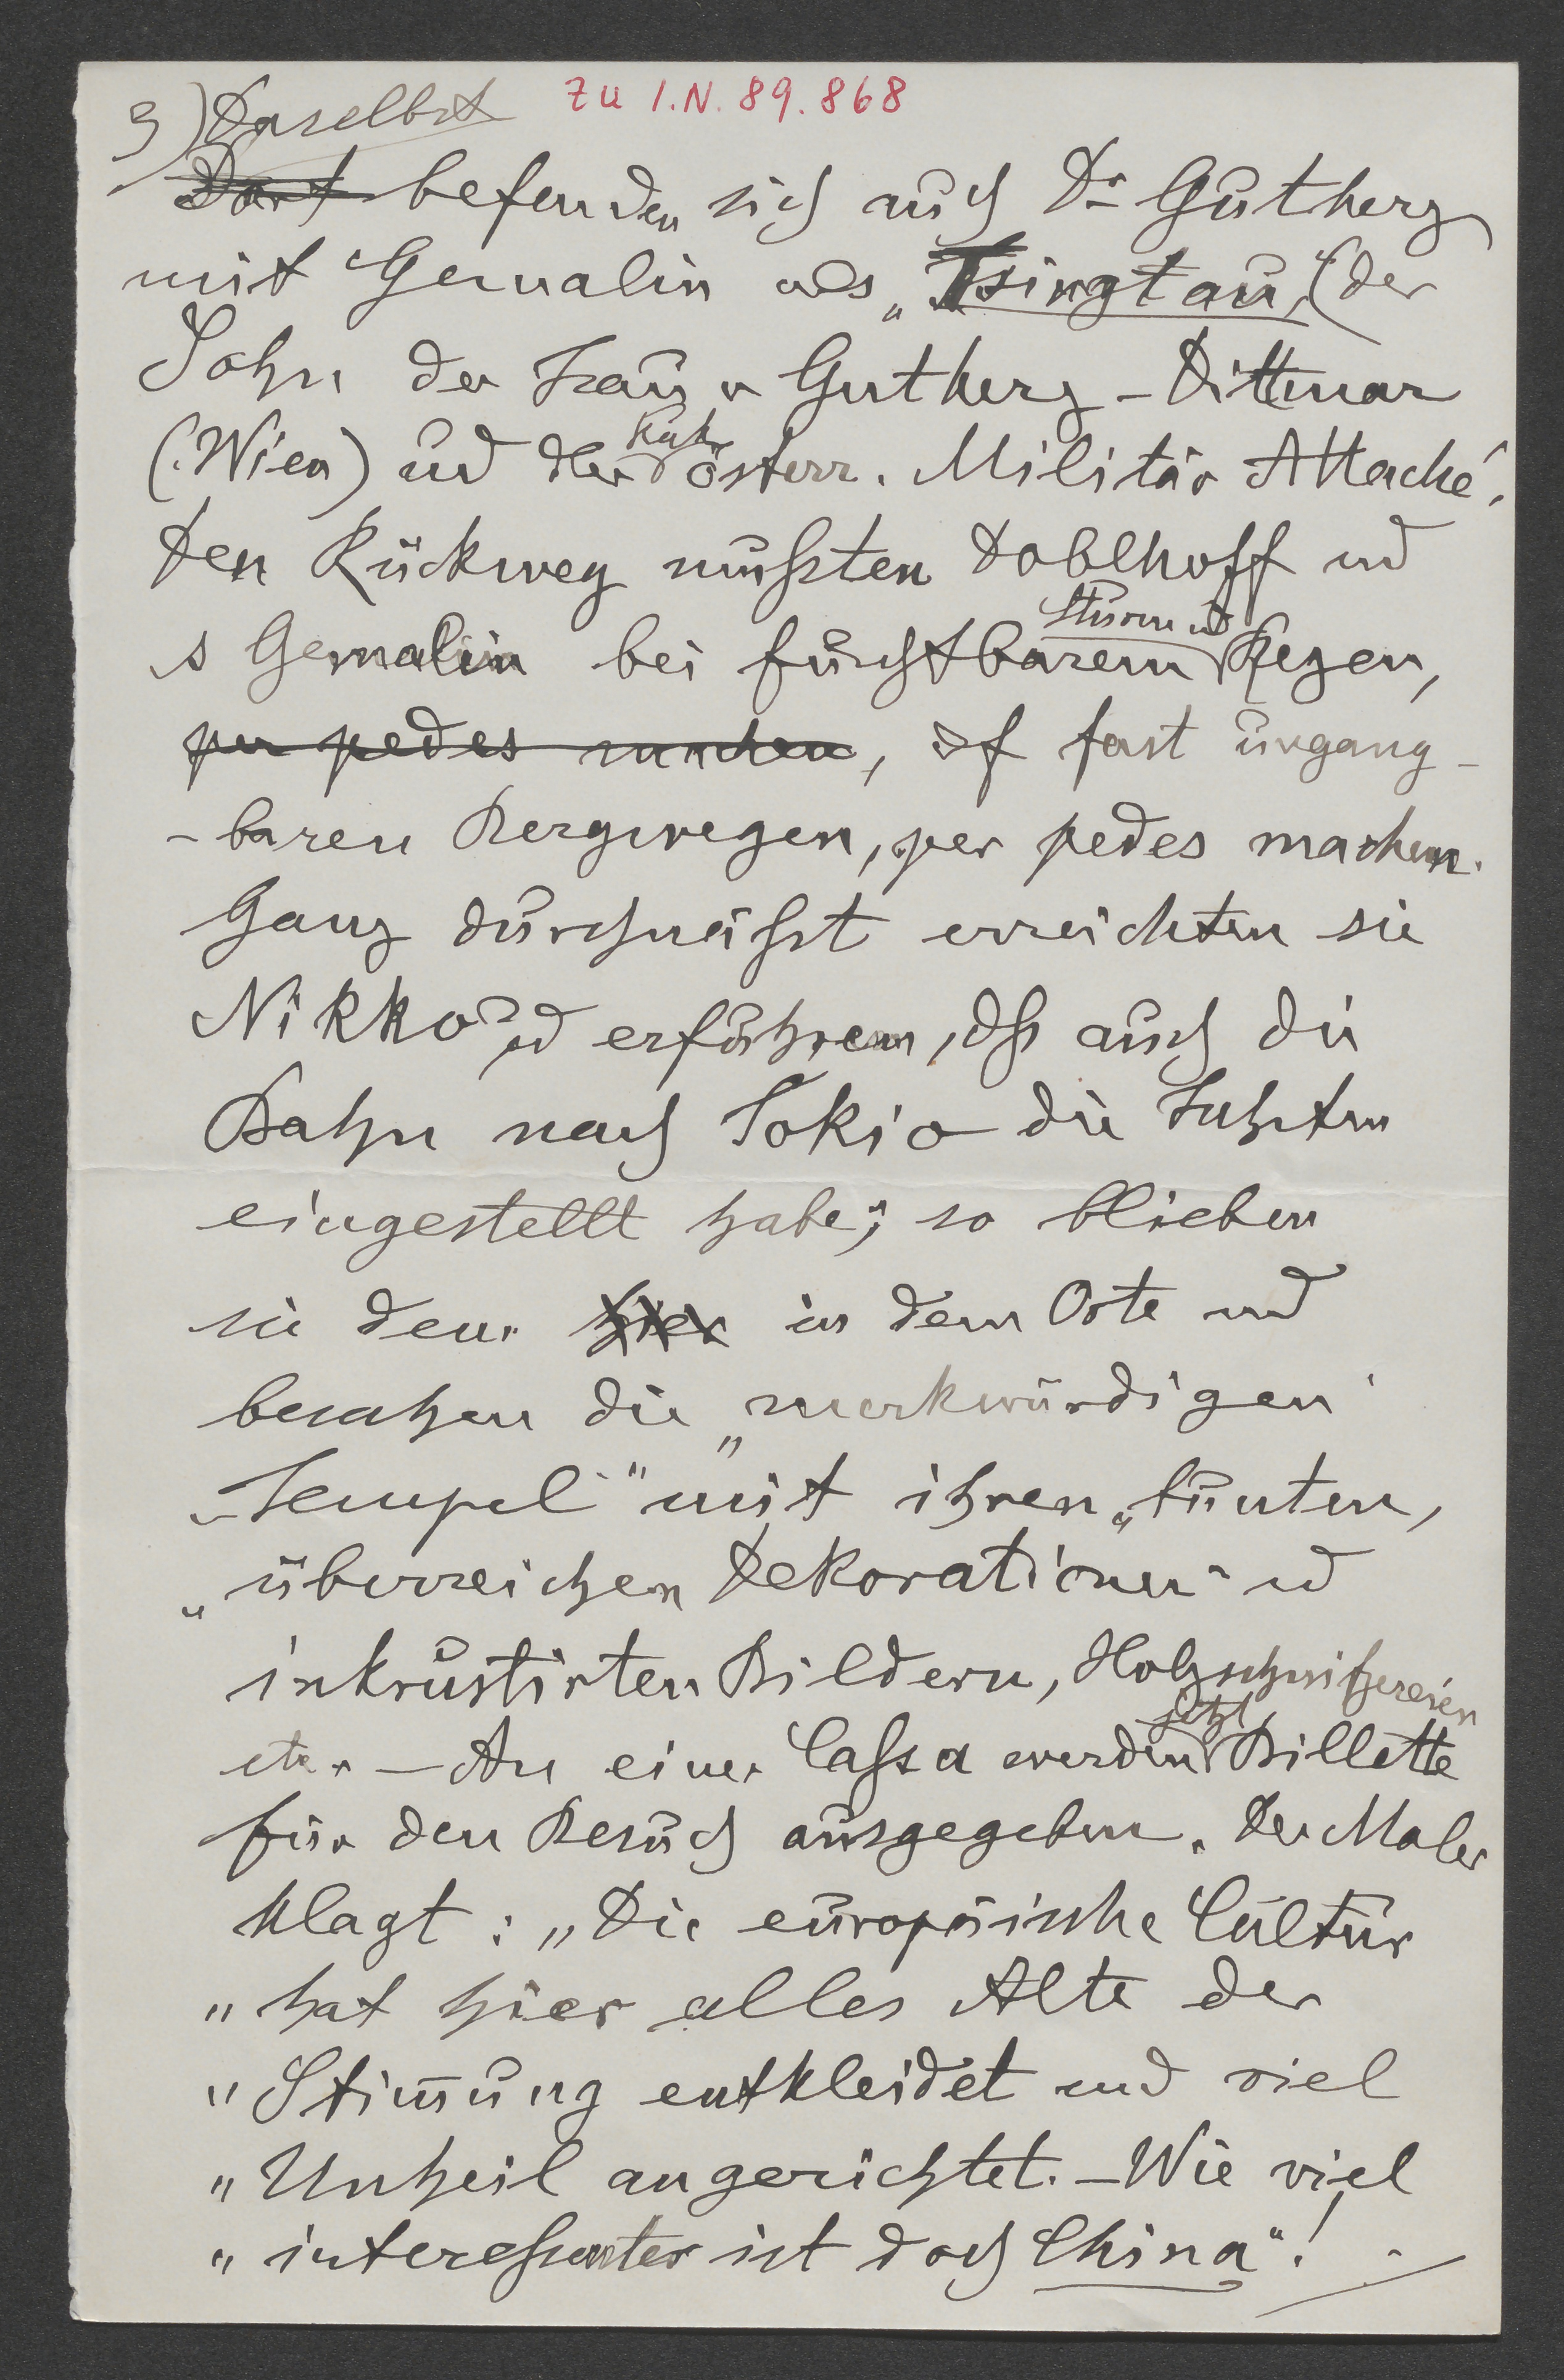 zu I.N. 89.868
3) Daselbst
Dort befanden sich auch Dr Gutherz
mit Gemalin aus „Tsingtau“, (der
Sohn der Frau v Gutherz-Dittmar
(Wien) ud der kuk österr. Militär Attaché.
Den Rückweg mußten Doblhoff ud
s Gemalin bei furchtbarem Sturm ud Regen,
per pedes machen, auf fast ungang-
-baren Bergwegen, per pedes machen.
Ganz durchnäßt erreichten sie
Nikko ud erfuhren, dß auch die
Bahn nach Tokio die Fahrten
eingestellt habe; so blieben
sie denn hier in dem Orte und
besahen die „merkwürdigen
„Tempel“ mit ihren „bunten,
„überreichen Dekorationen“ ud
inkrustirten Bildern, Holzschnitzereien
etc. – An einer Cassa werden jetzt Billette
für den Besuch ausgegeben. Der Maler
klagt: „Die europäische Cultur
„hat hier alles Alte der
„Stim̅ung entkleidet und viel
„Unheil angerichtet. – Wie viel
„interessanter ist doch China“!